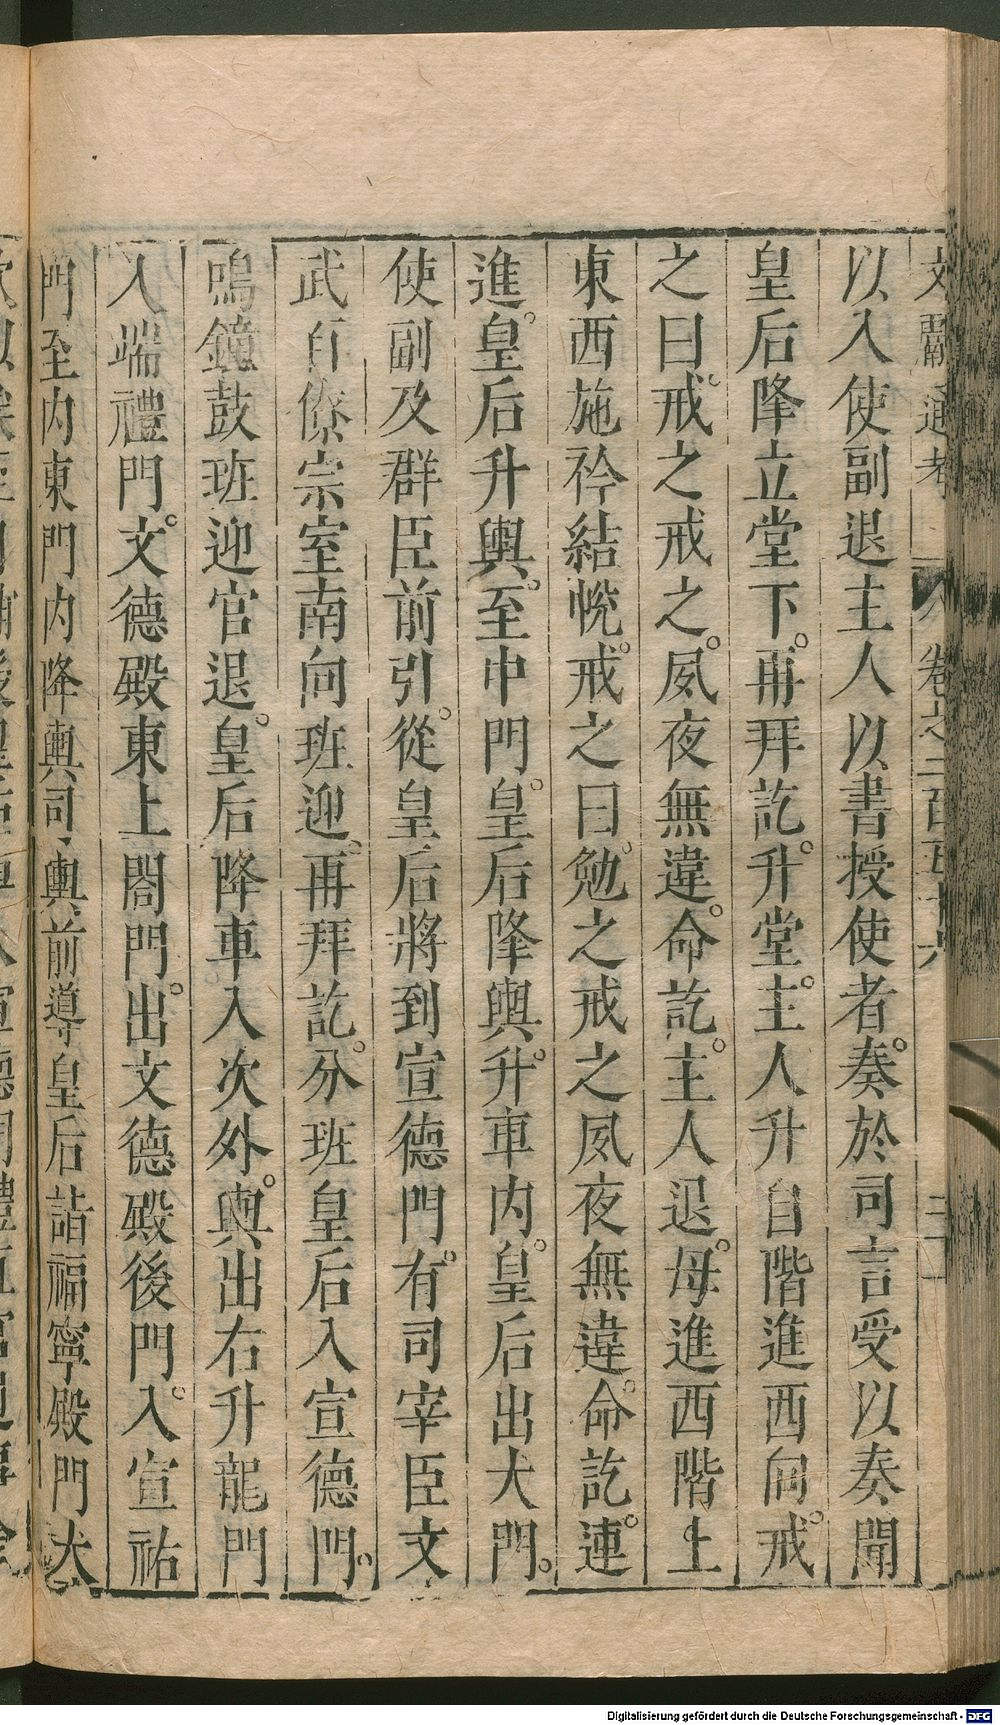 文獻通考 卷之二百五十六
以入使副退主人以書授使者奏於司言受以奏聞
皇后降立堂下再拜訖升堂主人升自階進西向戒
之曰戒之戒之夙夜無違命訖主人退母進西階上
東西施衿結帨戒之曰勉之戒之夙夜無違命訖連
進皇后升輿至中門皇后降輿升車内皇后出大門
使副及群臣前引從皇后將到宣德門有司宰臣文
武百僚宗室南向班迎再拜訖分班皇后入宣德門
鳴鐘鼓班迎官退皇后降車入次外輿出右升龍門
入端禮門文德殿東上閤門出文德殿後門入宣祐
門至内東門内降輿司輿前導皇后詣福寧殿門大
Digitalisierung gefördert durch die Deutsche Forschungsgemeinschaft - DFG